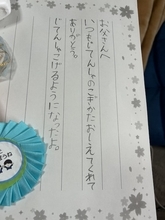 お父さんへ
いつもじてんしゃのこぎかたおしえてくれて
ありがとう。
じてんしゃこげるようになったよ